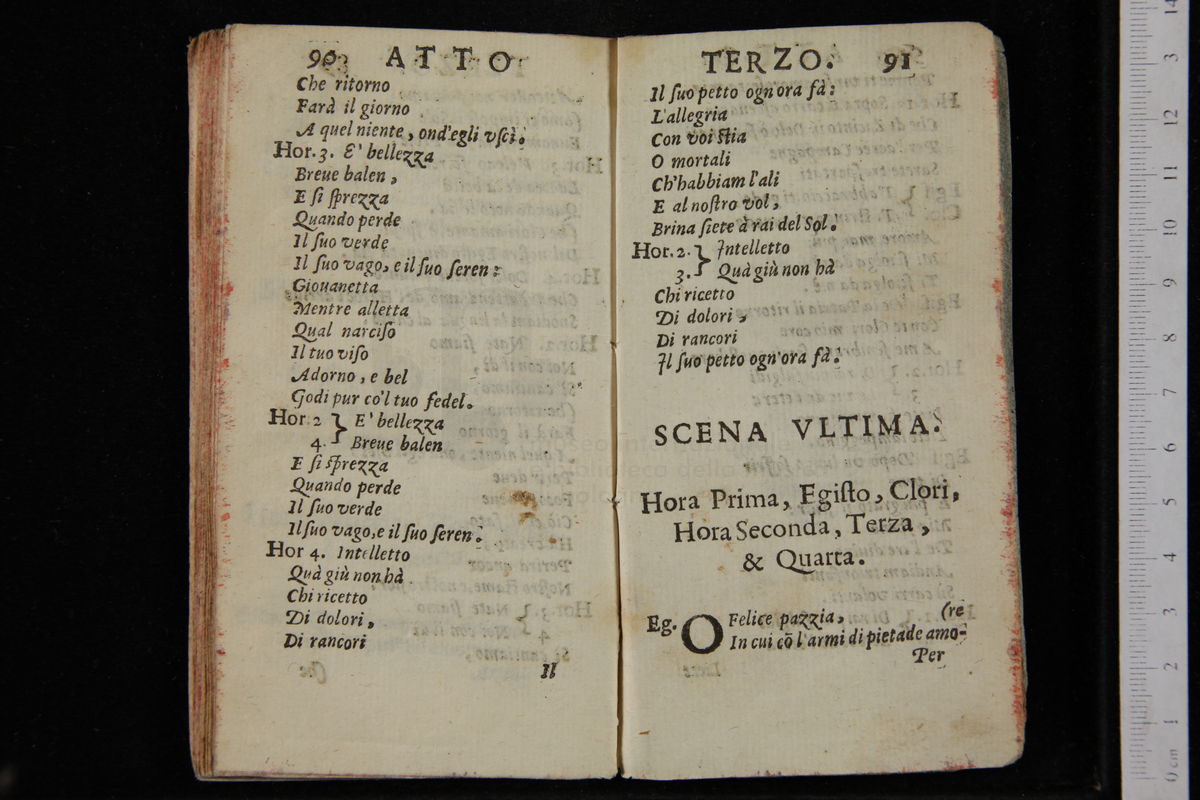 90 ATTO
Che ritorno
Farà il giorno
A quel niente, ond'egli vſcì.
Hor. 3. E' bellezza
Breue balen,
E ſi ſprezza
Quando perde
Il ſuo verde
Il ſuo vago, e il ſuo ſeren:
Giouanetta
Mentre alletta
Qual narciſo
Il tuo viſo
Adorno, e bel
Godi pur co'l tuo fedel.
Hor. 2 } E' bellezza
4. Breue balen
E ſi ſprezza
Quando perde
Il ſuo verde
Il ſuo vago, e il ſuo ſeren:
Hor 4. Intelletto
Quà giù non hà
Chi ricetto
Di dolori,
Di rancori
Il
TERZO. 91
Il ſuo petto ogn'ora fà:
L'allegria
Con voi ſtia
O mortali
Ch'habbiam l'ali
E al noſtro vol,
Brina ſiete à rai del Sol.
Hor. 2. } Intelletto
3. Quà giù non hà
Chi ricetto
Di dolori,
Di rancori
Il ſuo petto ogn'ora fà.
SCENA VLTIMA.
Hora Prima, Egiſto, Clori,
Hora Seconda, Terza,
& Quarta.
Eg. O Felice pazzia, (re
In cui cõ l'armi di pietade amo-
Per
0 cm 1 2 3 4 5 6 7 8 9 10 11 12 3 14